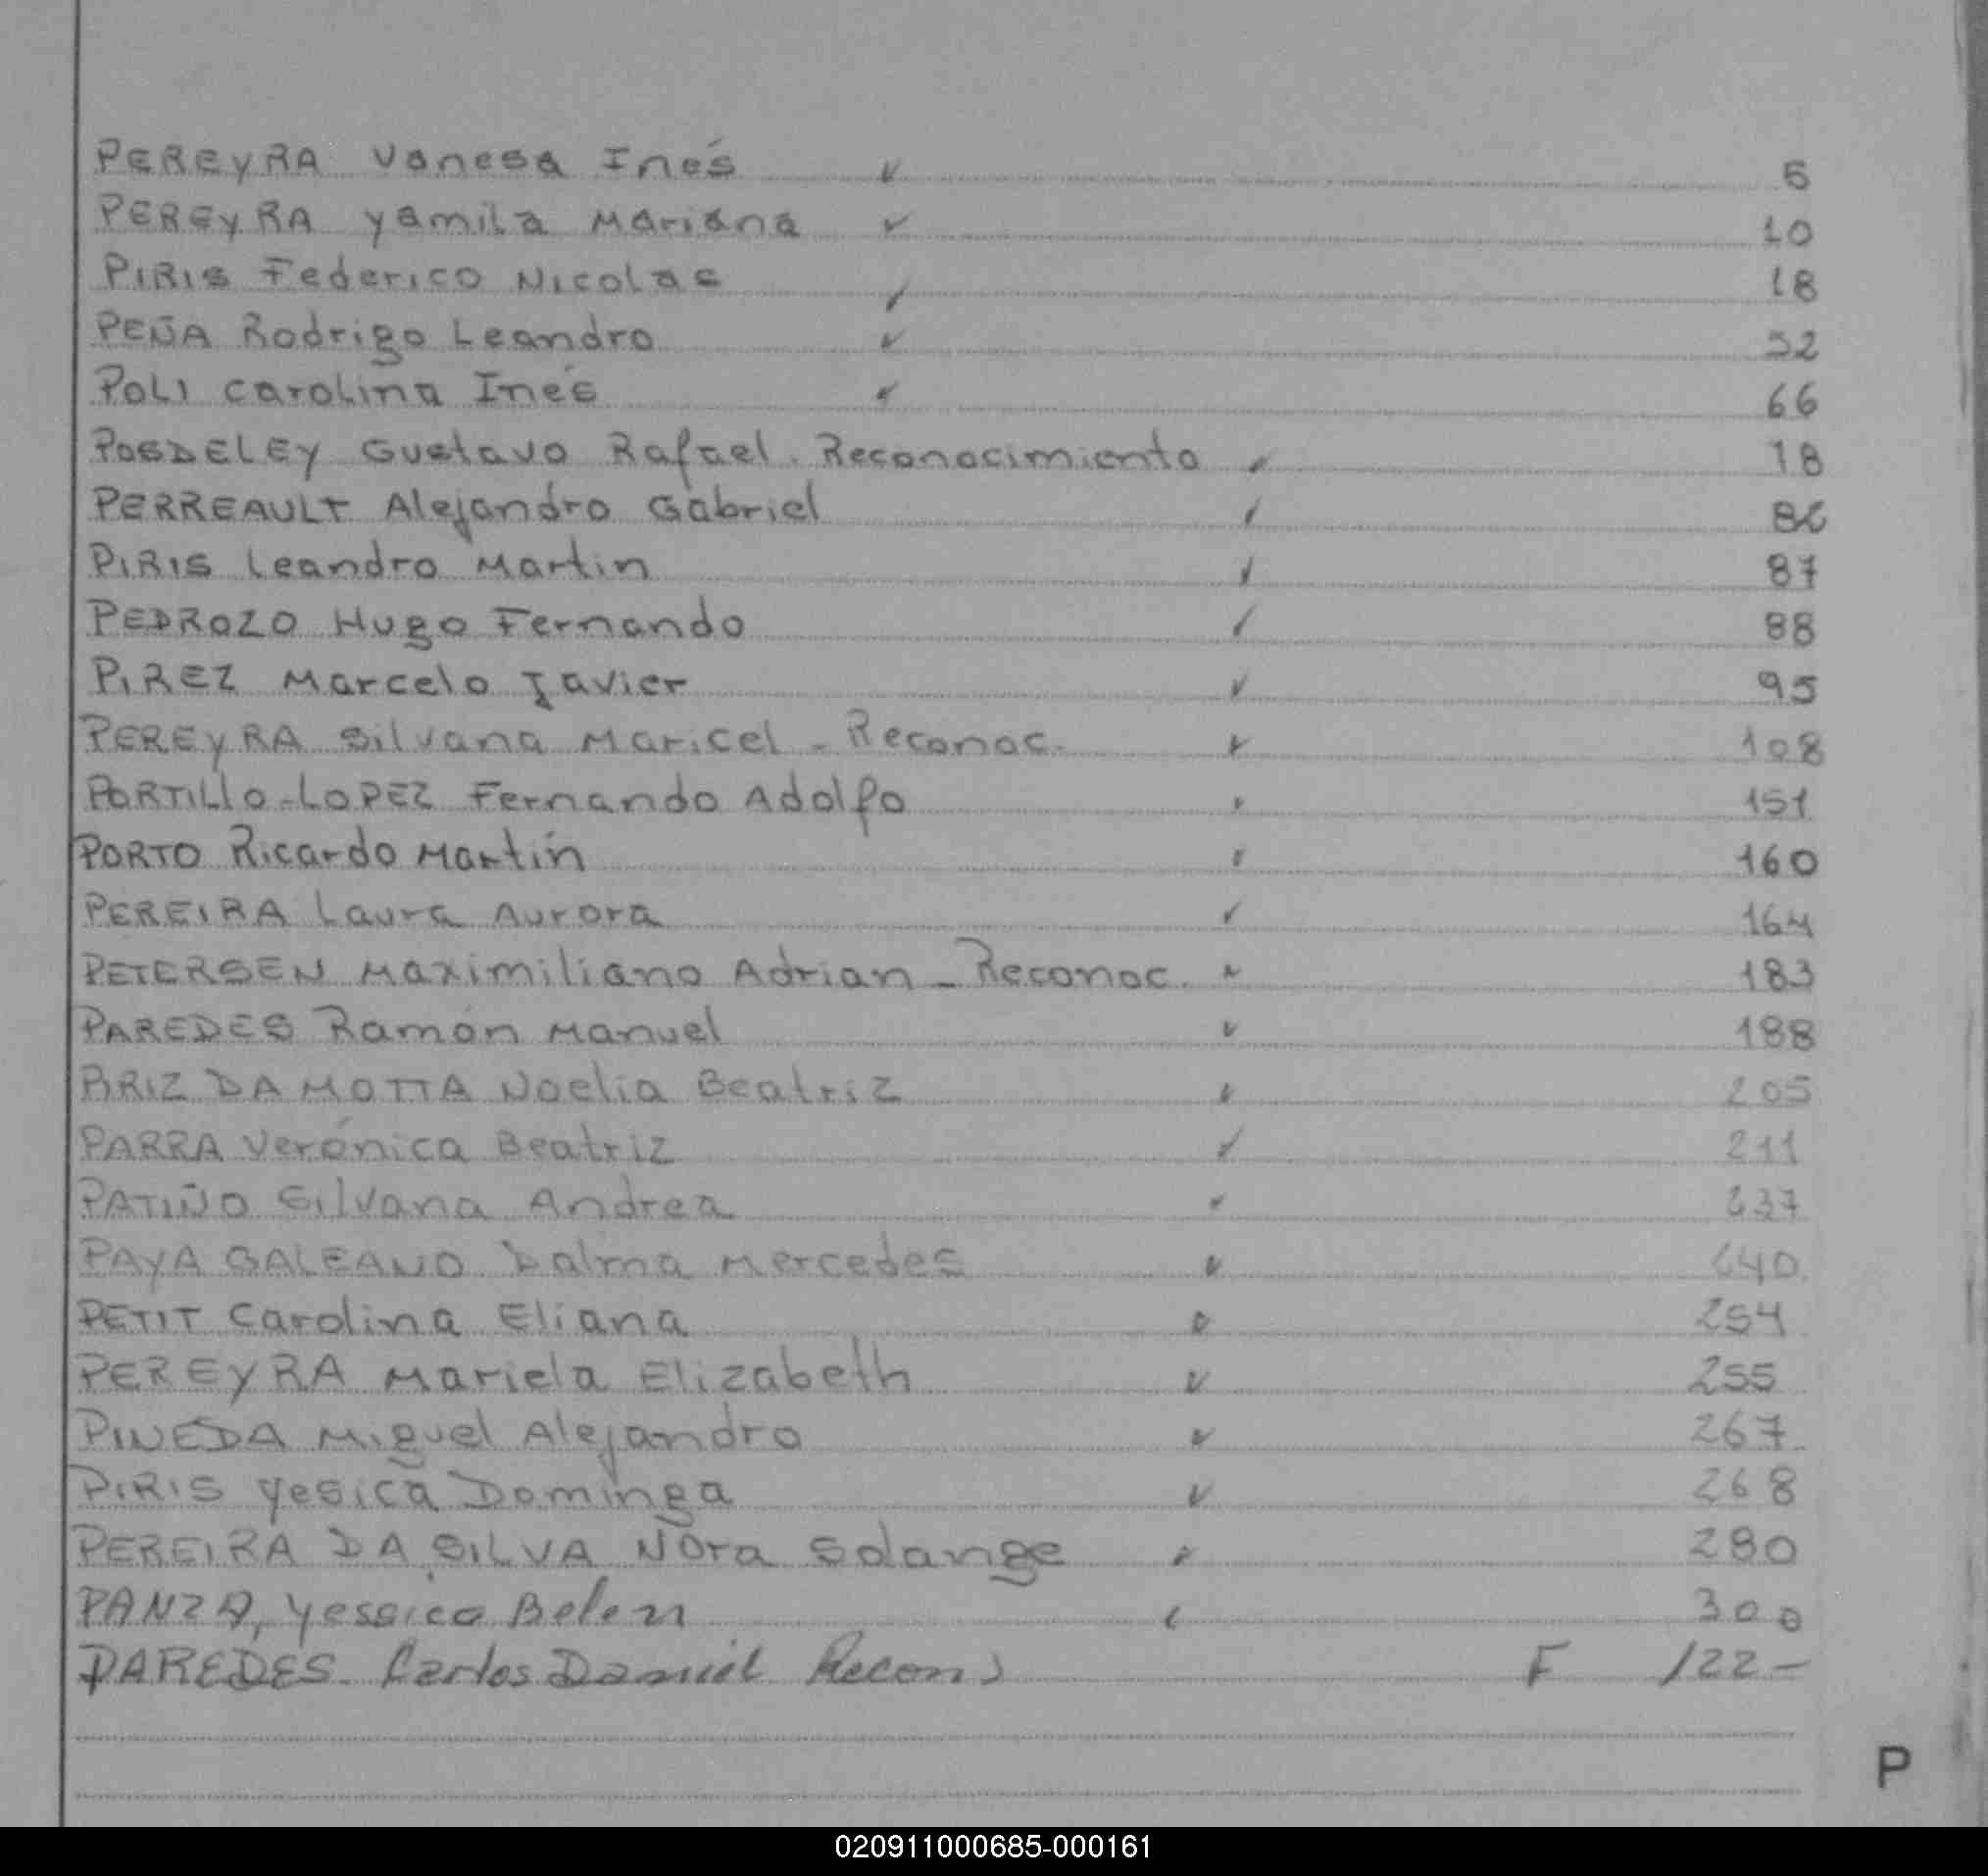 PEREYRA Vanesa Inés ✓ 5
PEREYRA Yamila Mariana ✓ 10
PIRIS Federico Nicolas ✓ 18
PEÑA Rodrigo Leandro ✓ 52
POLI Carolina Inés ✓ 66
POSDELEY Gustavo Rafael. Reconocimiento ✓ 78
PERREAULT Alejandro Gabriel ✓ 86
PIRIS Leandro Martin ✓ 87
PEDROZO Hugo Fernando ✓ 88
PIREZ Marcelo Javier ✓ 95
PEREYRA Silvana Maricel - Reconoc. ✓ 108
PORTILLO-LOPEZ Fernando Adolfo ✓ 151
PORTO Ricardo Martín ✓ 160
PEREIRA Laura Aurora ✓ 164
PETERSEN Maximiliano Adrian - Reconoc. ✓ 183
PAREDES Ramón Manuel ✓ 188
PIRIZ DA MOTTA Noelia Beatriz ✓ 205
PARRA Verónica Beatriz ✓ 211
PATIÑO Silvana Andrea ✓ 237
PAYA GALEANO Dalma Mercedes ✓ 240
PETIT Carolina Eliana ✓ 254
PEREYRA Mariela Elizabeth ✓ 255
PINEDA Miguel Alejandro ✓ 267
PIRIS Yesica Dominga ✓ 268
PEREIRA DA SILVA Nora Solange ✓ 280
PANZA, Yessica Belen ✓ 300
PAREDES. Carlos Daniel Recon) F 122-
P
020911000685-000161